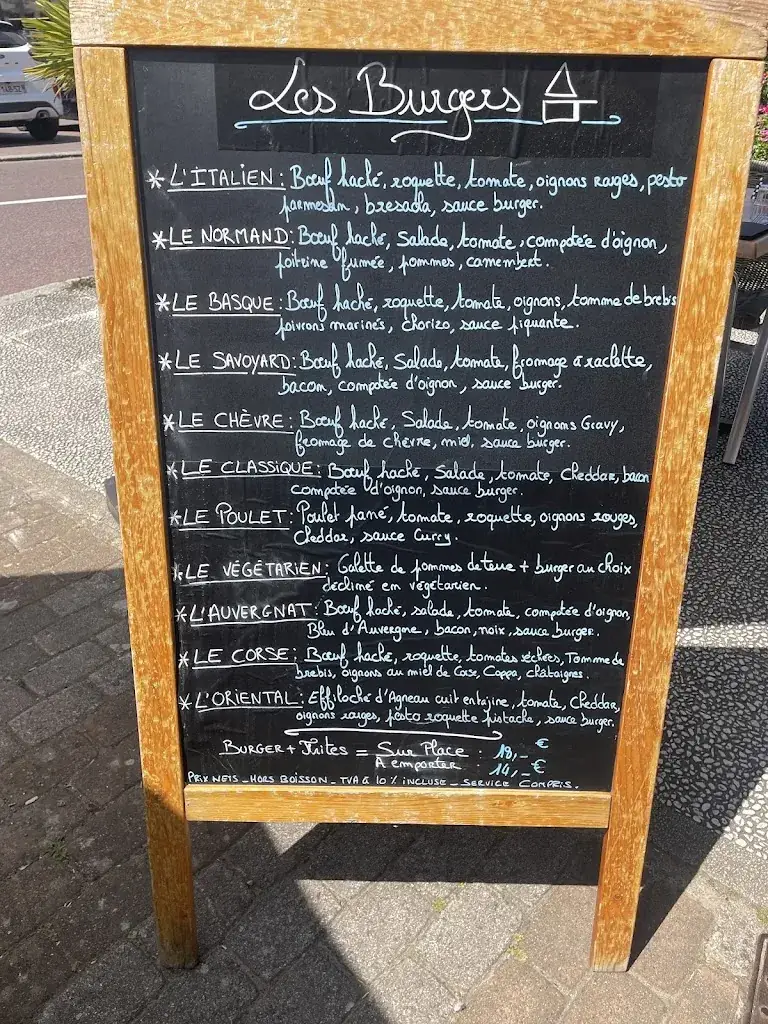 Les Burgers
* L'ITALIEN : Bœuf haché, roquette, tomate, oignons rouges, pesto
parmesan, bresaola, sauce burger.
* LE NORMAND : Bœuf haché, Salade, tomate, compotée d'oignon,
poitrine fumée, pommes, camembert.
* LE BASQUE : Bœuf haché, roquette, tomate, oignons, tomme de brebis
poivrons marinés, chorizo, sauce piquante.
* LE SAVOYARD : Bœuf haché, Salade, tomate, fromage à raclette,
bacon, compotée d'oignon, sauce burger.
* LE CHÈVRE : Bœuf haché, Salade, tomate, oignons Gravy,
fromage de chèvre, miel, sauce burger.
* LE CLASSIQUE : Bœuf haché, Salade, tomate, Cheddar, bacon
compotée d'oignon, sauce burger.
* LE POULET : Poulet pané, tomate, roquette, oignons rouges,
Cheddar, sauce Curry.
* LE VÉGÉTARIEN : Galette de pommes de terre + burger au choix
décliné en végétarien.
* L'AUVERGNAT : Bœuf haché, salade, tomate, compotée d'oignon,
Bleu d'Auvergne, bacon, noix, sauce burger.
* LE CORSE : Bœuf haché, roquette, tomates séchées, Tomme de
brebis, oignons au miel de Corse, Coppa, châtaignes.
* L'ORIENTAL : Effiloché d'Agneau cuit en tajine, tomate, Cheddar,
oignons rouges, pesto roquette pistache, sauce burger.
BURGER + Frites = Sur Place : 18,- €
A emporter : 14,- €
PRIX NETS - HORS BOISSON - TVA à 10 % INCLUSE - SERVICE COMPRIS.